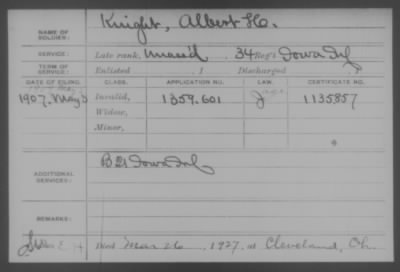 NAME OF SOLDIER: Knight, Albert H.
SERVICE: Late rank, Unass'd 34 Reg't Iowa Inf
TERM OF SERVICE: Enlisted , 1 Discharged , 1
DATE OF FILING. CLASS. APPLICATION NO. LAW. CERTIFICATE NO.
1907, May 3 Invalid, 1359.601 J 1135857
Widow,
Minor,
ADDITIONAL SERVICES: B 21 Iowa Inf
REMARKS:
Died Mar 26, 1927, at Cleveland, Oh.